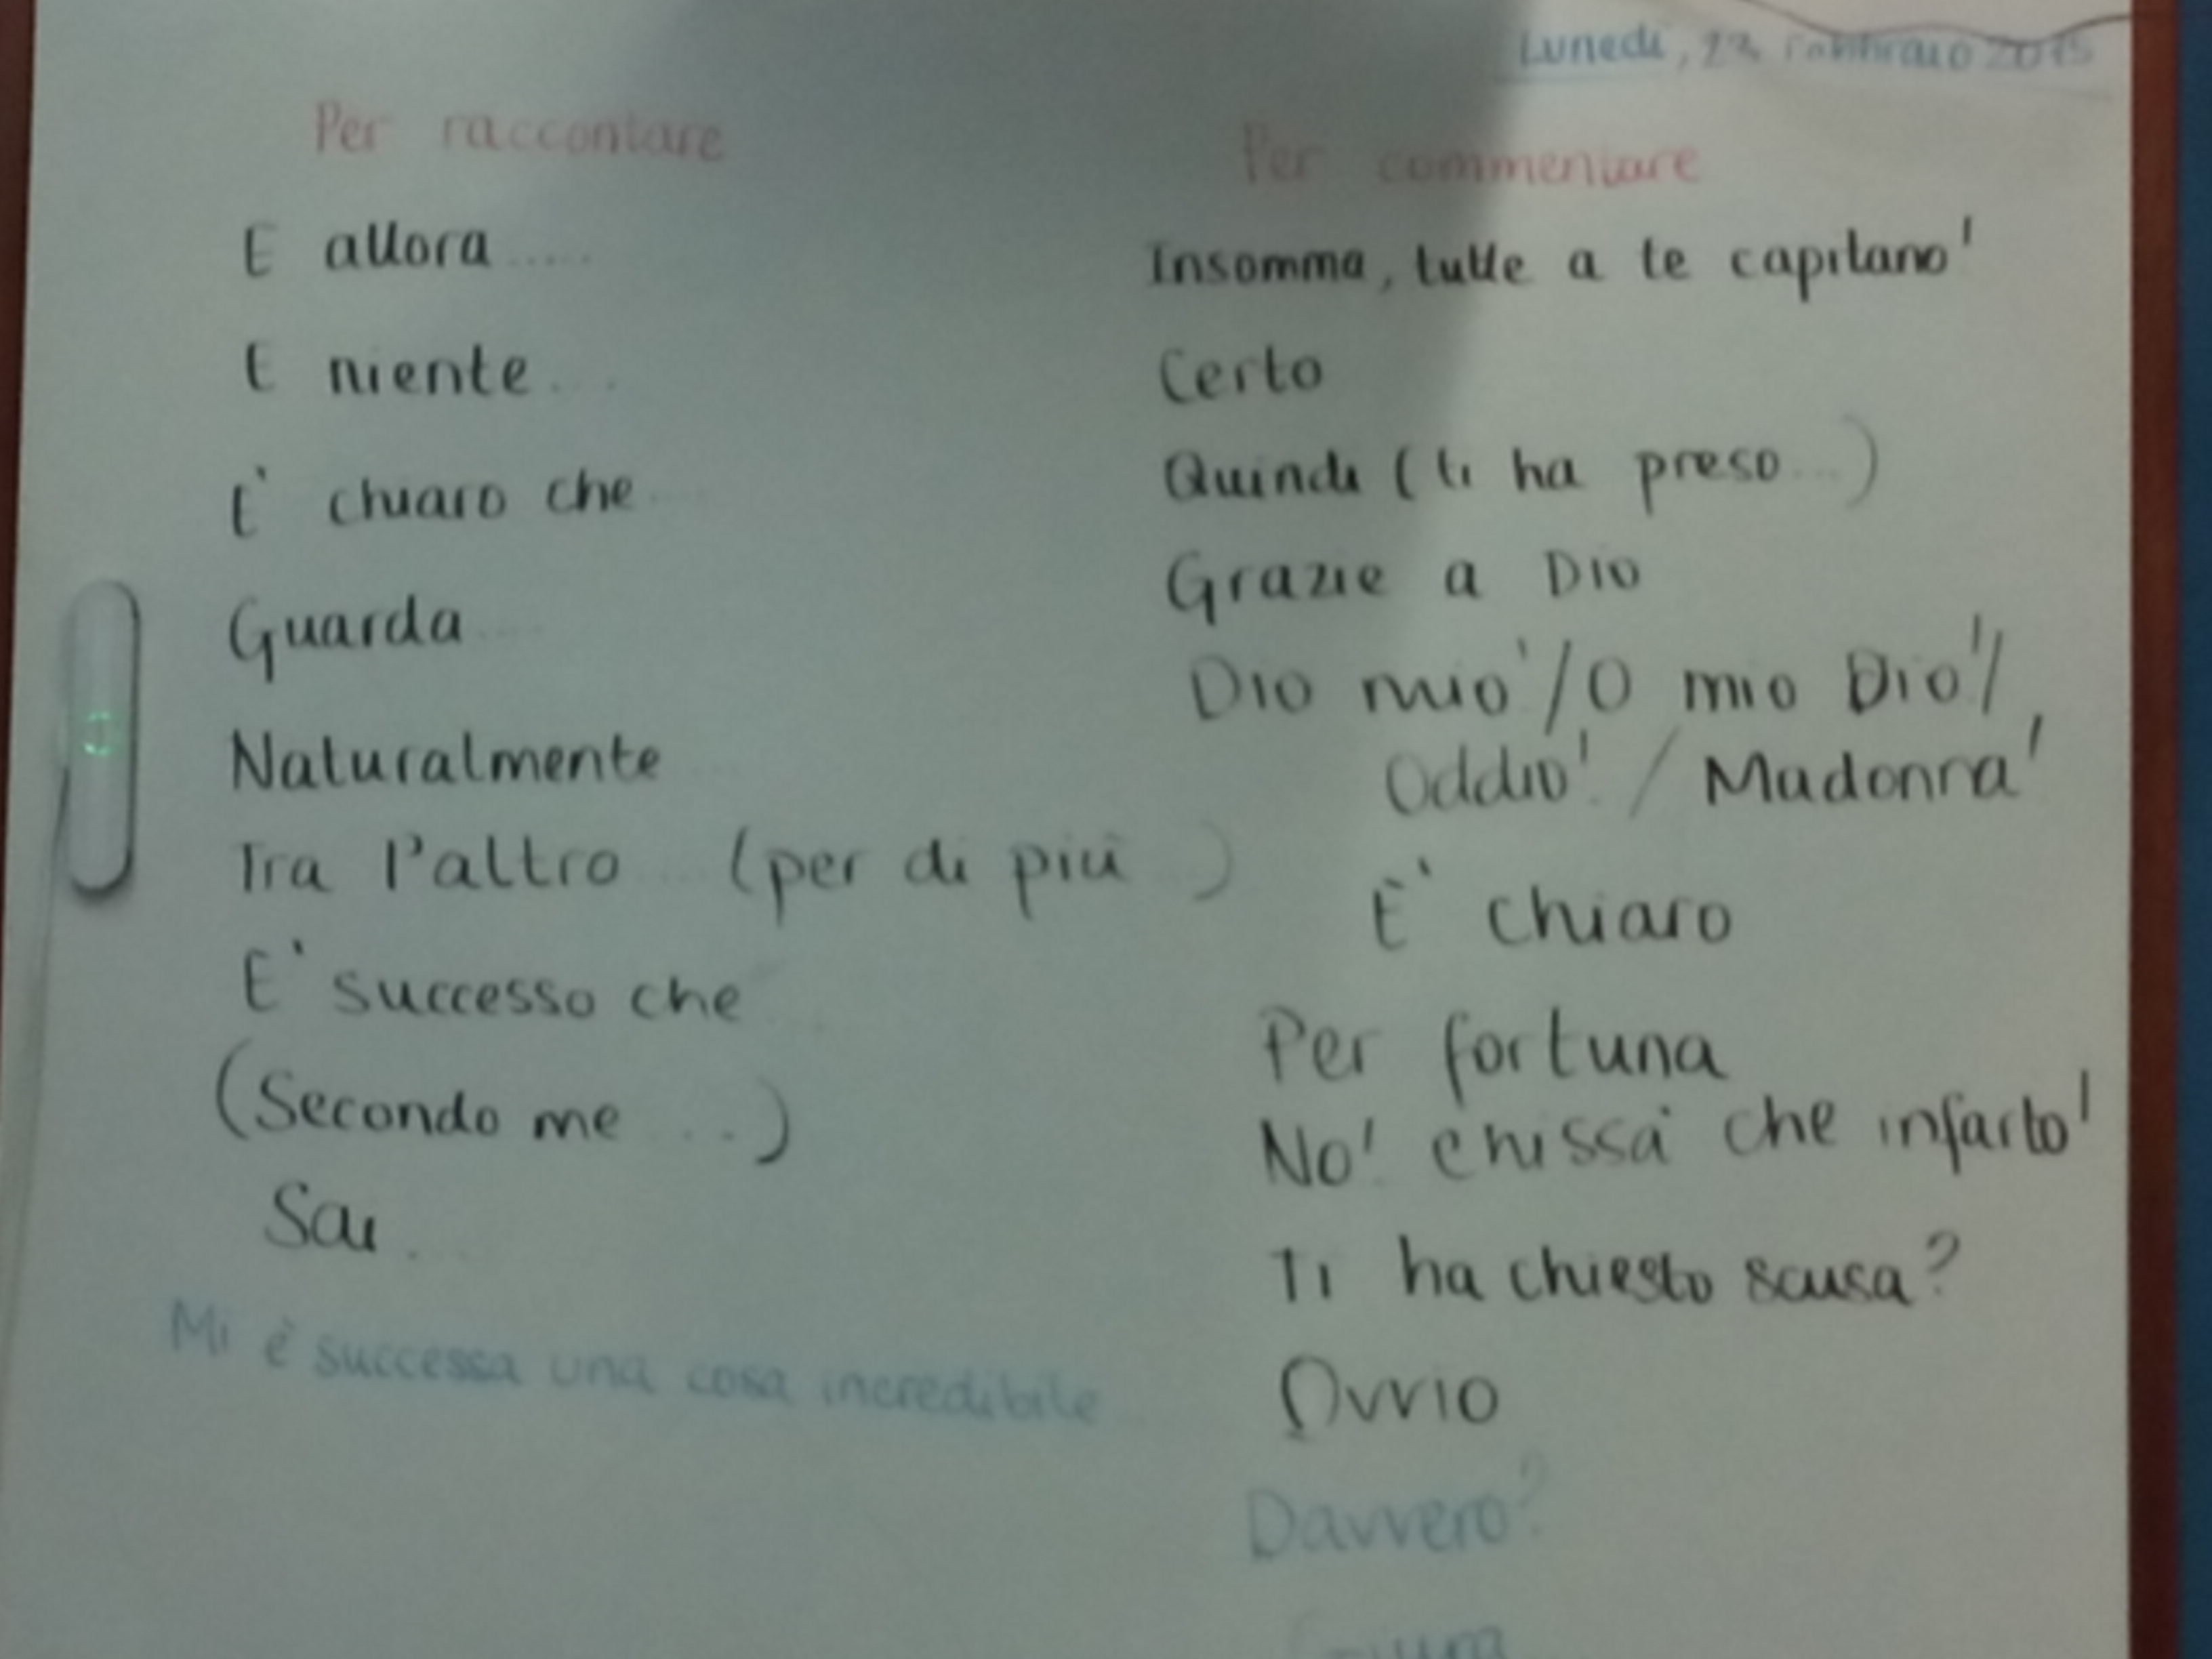 Lunedì, 23 Febbraio 2015
Per raccontare
E allora.....
E niente...
E' chiaro che
Guarda
Naturalmente
Tra l'altro... (per di più...)
E' successo che
(Secondo me...)
Sai...
Mi è successa una cosa incredibile
Per commentare
Insomma, tutte a te capitano!
Certo
Quindi (ti ha preso...)
Grazie a Dio
Dio mio!/O mio Dio!/
Oddio!/Madonna!
E' chiaro
Per fortuna
No! Chissà che infarto!
Ti ha chiesto scusa?
Ovvio
Davvero?